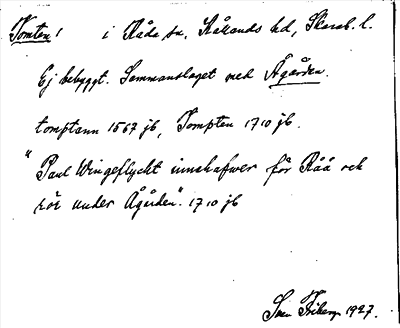 Tomten! i Råda sn. Kållands hd, Skarab. l.
Ej bebyggt. Sammanslaget med Ågården.
tomptann 1567 jb, Tompten 1710 jb.
"Paul Wingeflycht innehafwer får Råå och
rör under Ågården". 1710 jb
Sven Friberg 1927.